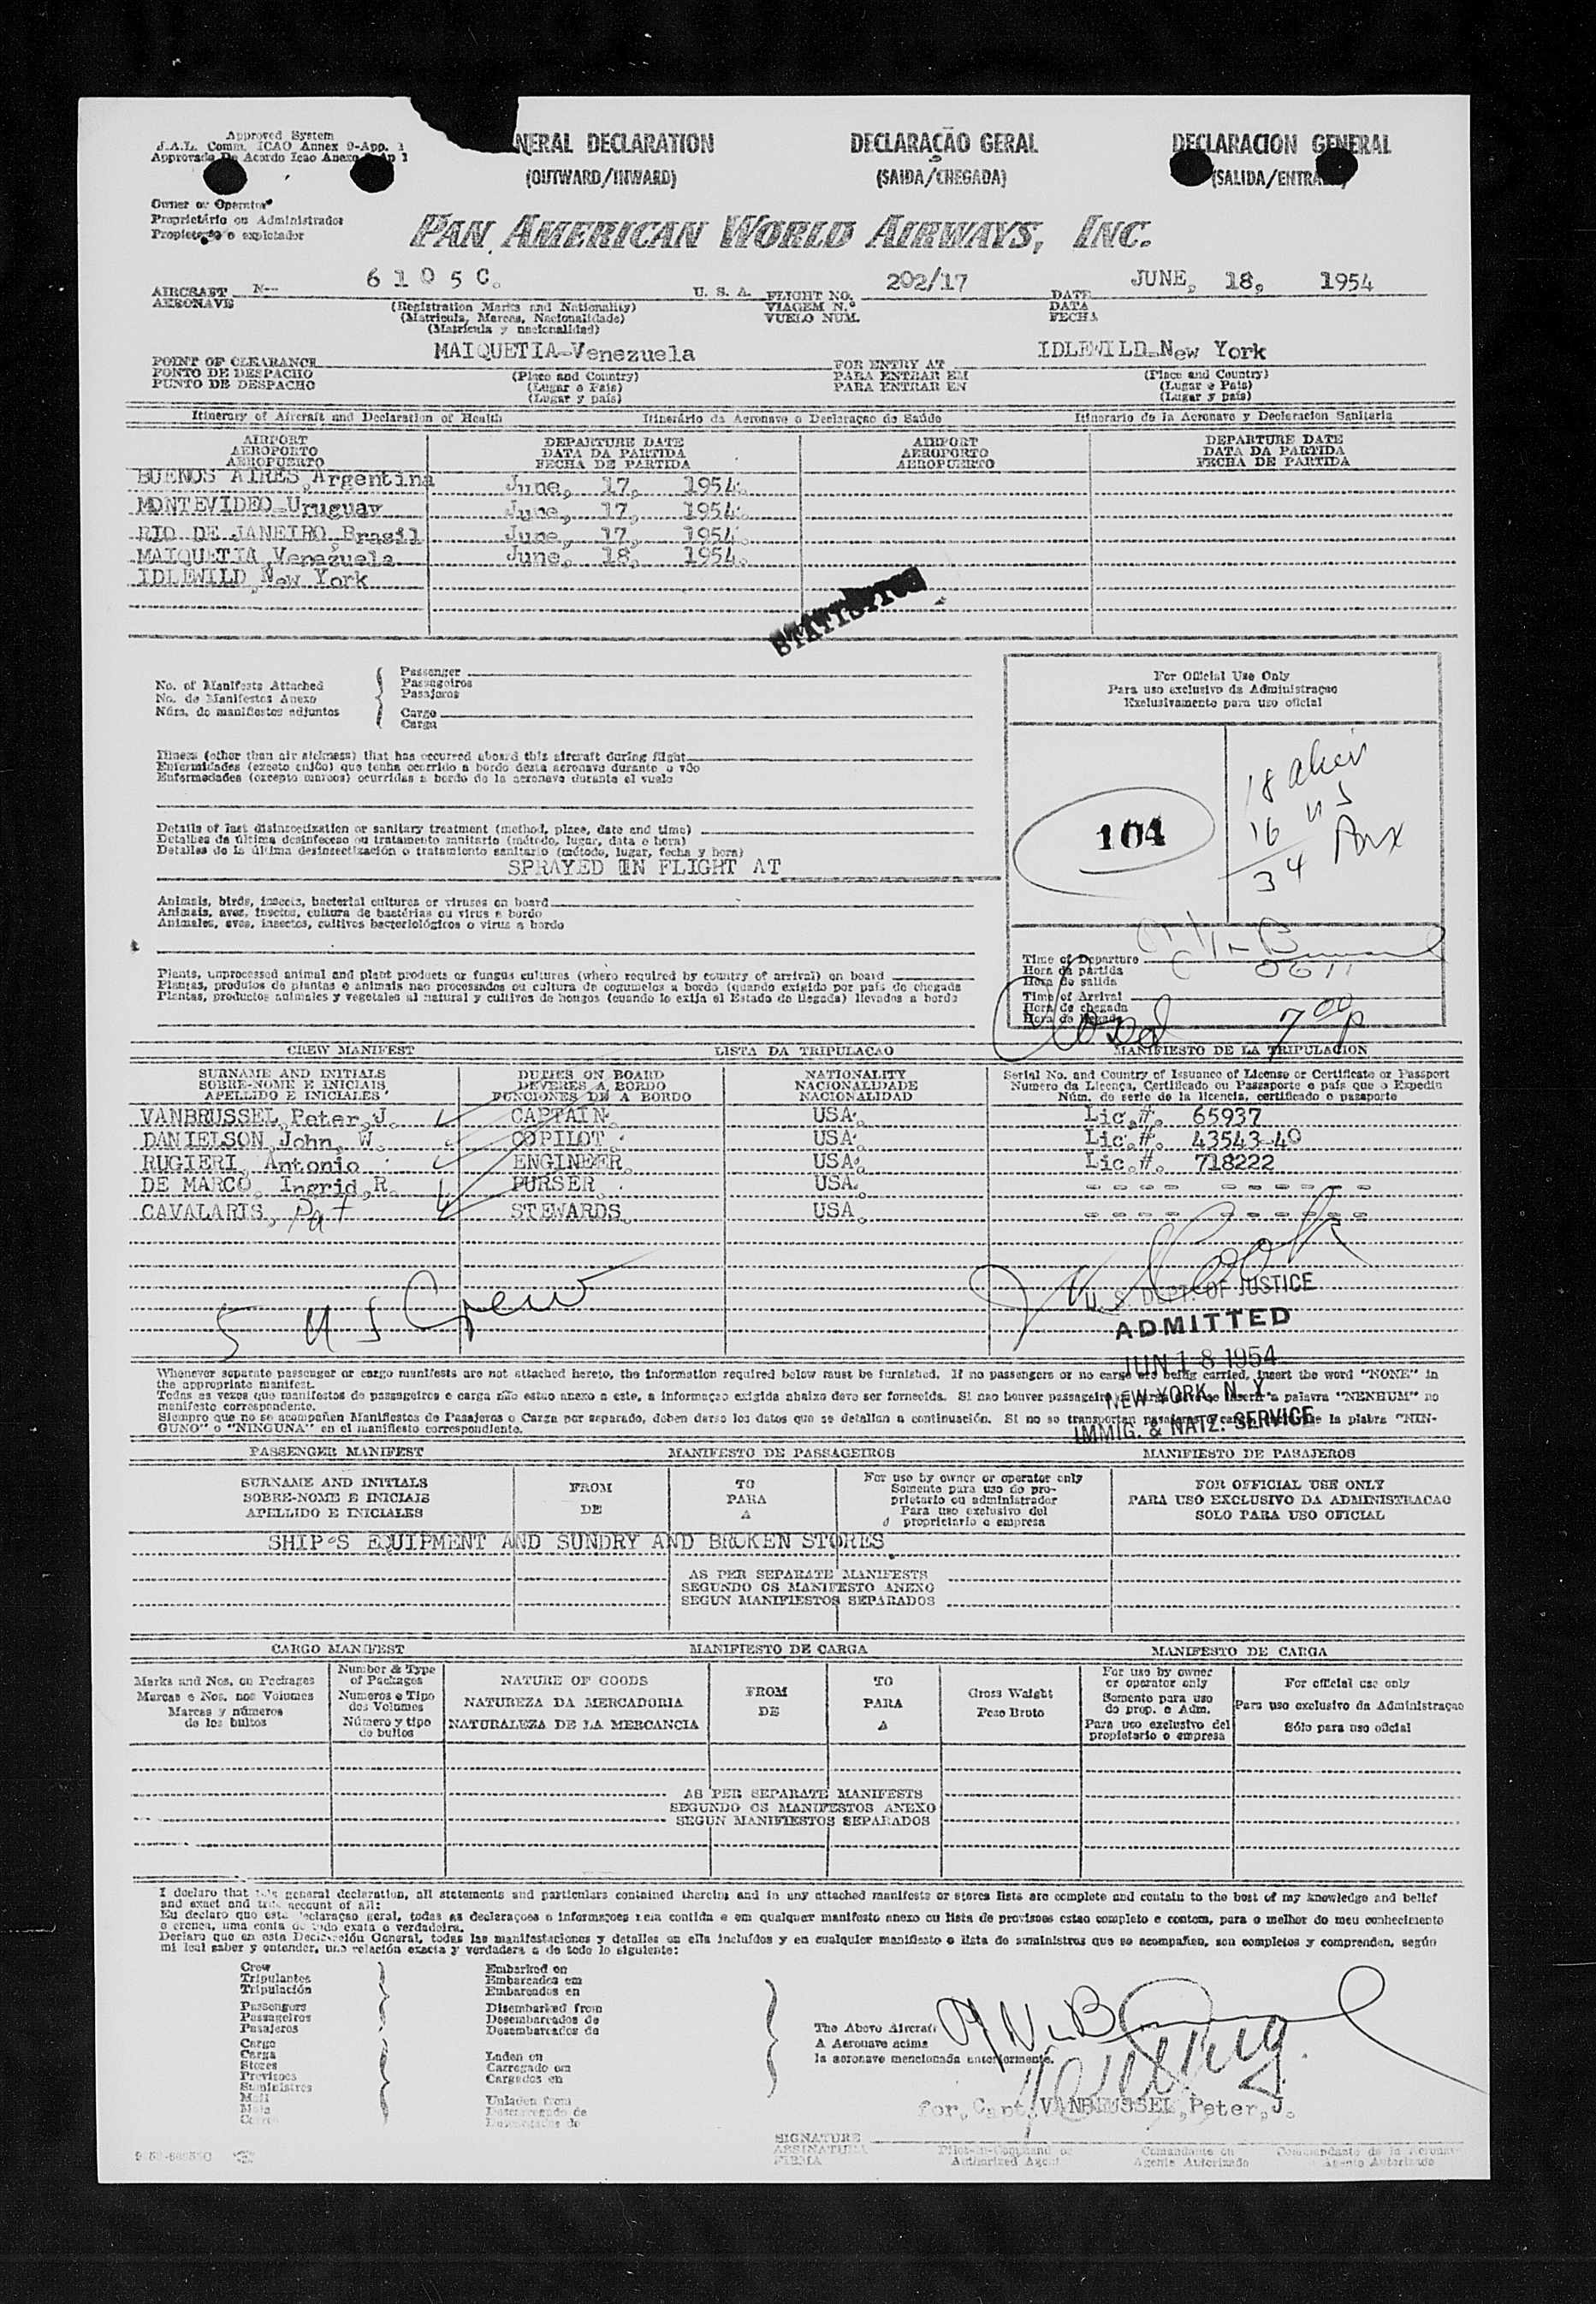 Approved System
J.A.L. Comm. ICAO Annex 9-App. 1
Approvado De Acordo Icao Anexo Ap 1
NERAL DECLARATION
(OUTWARD/INWARD)
DECLARAÇÃO GERAL
(SAIDA/CHEGADA)
DECLARACION GENERAL
(SALIDA/ENTRADA)
Owner or Operator
Proprietário ou Administrador
Propietario o explotador
PAN AMERICAN WORLD AIRWAYS, INC.
AIRCRAFT N-- 6105C. U. S. A. FLIGHT NO. 202/17 DATE JUNE, 18, 1954
AERONAVE (Registration Marks and Nationality) VIAGEM N.º DATA
(Matricula, Marcas, Nacionalidade) VUELO NUM. FECHA
(Matricula y nacionalidad)
POINT OF CLEARANCE MAIQUETIA-Venezuela FOR ENTRY AT IDLEWILD-New York
PONTO DE DESPACHO (Place and Country) PARA ENTRAR EM (Place and Country)
PUNTO DE DESPACHO (Lugar e Pais) PARA ENTRAR EN (Lugar e Pais)
(Lugar y pais) (Lugar y pais)
Itinerary of Aircraft and Declaration of Health Itinerário da Aeronave e Declaraçao de Saúde Itinerario de la Aeronave y Declaracion Sanitaria
AIRPORT DEPARTURE DATE AIRPORT DEPARTURE DATE
AEROPORTO DATA DA PARTIDA AEROPORTO DATA DA PARTIDA
AEROPUERTO FECHA DE PARTIDA AEROPUERTO FECHA DE PARTIDA
BUENOS AIRES,Argentina June, 17, 1954.
MONTEVIDEO-Uruguay June, 17, 1954.
RIO DE JANEIRO,Brasil June, 17, 1954.
MAIQUETIA,Venezuela June, 18, 1954.
IDLEWILD,New York
No. of Manifests Attached
No. de Manifestos Anexo
Núm. de manifiestos adjuntos
Passenger
Passageiros
Pasajeros
Cargo
Carga
For Official Use Only
Para uso exclusivo da Administraçao
Exclusivamente para uso oficial
Illness (other than air sickness) that has occurred aboard this aircraft during flight
Enfermidades (exceto enjôo) que tenha ocorrido a bordo desta aeronave durante o vôo
Enfermedades (excepto mareos) ocurridas a bordo de la aeronave durante el vuelo
104
18 alien
16 US
34 Pax
Details of last disinsectization or sanitary treatment (method, place, date and time)
Detalhes da última desinfeceao ou tratamento sanitario (método, lugar, data e hora)
Detalles de la última desinsectización o tratamiento sanitario (método, lugar, fecha y hora)
SPRAYED IN FLIGHT AT
Animals, birds, insects, bacterial cultures or viruses on board
Animais, aves, insetos, cultura de bactérias ou virus a bordo
Animales, aves, insectos, cultivos bacteriológicos o virus a bordo
Plants, unprocessed animal and plant products or fungus cultures (where required by country of arrival) on board
Plantas, produtos de plantas e animais nao processados ou cultura de cogumelos a bordo (quando exigido por pais de chegada
Plantas, productos animales y vegetales al natural y cultivos de hongos (cuando lo exija el Estado de llegada) llevados a bordo
Time of Departure
Hora da partida
Hora de salida
Time of Arrival
Hora de chegada
Hora de llegada
Closed 7 00 p
CREW MANIFEST LISTA DA TRIPULACAO MANIFIESTO DE LA TRIPULACION
SURNAME AND INITIALS DUTIES ON BOARD NATIONALITY Serial No. and Country of Issuance of License or Certificate or Passport
SOBRE-NOME E INICIAIS DEVERES A BORDO NACIONALIDADE Numero da Licença, Certificado ou Passaporte e pais que o Expediu
APELLIDO E INICIALES FUNCIONES DE A BORDO NACIONALIDAD Núm. de serie de la licencia, certificado o pasaporte
VANBRUSSEL,Peter,J. CAPTAIN. USA. Lic.#. 65937
DANIELSON,John, W. COPILOT. USA. Lic.#. 43543-40
RUGIERI, Antonio ENGINEER. USA. Lic.#. 718222
DE MARCO, Ingrid,R. PURSER. USA. - - - - - - - - - -
CAVALARIS, Pat STEWARDS. USA. - - - - - - - - - -
5 US Crew
U. S. DEPT. OF JUSTICE
ADMITTED
JUN 18 1954
NEW YORK, N. Y.
IMMIG. & NATZ. SERVICE
Whenever separate passenger or cargo manifests are not attached hereto, the information required below must be furnished. If no passengers or no cargo are being carried, insert the word "NONE" in
the appropriate manifest.
Todas as vezes que manifestos de passageiros e carga não estao anexo a este, a informaçao exigida abaixo deve ser fornecida. Si nao houver passageiro palavra "NENHUM" no
manifesto correspondente.
Siempre que no se acompañen Manifiestos de Pasajeros o Carga por separado, deben darse los datos que se detallan a continuación. Si no se transportan la plabra "NIN-
GUNO" o "NINGUNA" en el manifiesto correspondiente.
PASSENGER MANIFEST MANIFESTO DE PASSAGEIROS MANIFIESTO DE PASAJEROS
SURNAME AND INITIALS FROM TO For use by owner or operator only FOR OFFICIAL USE ONLY
SOBRE-NOME E INICIAIS DE PARA Somente para uso do proprietario ou administrador PARA USO EXCLUSIVO DA ADMINISTRACAO
APELLIDO E INICIALES A Para uso exclusivo del propietario o empresa SOLO PARA USO OFICIAL
SHIP'S EQUIPMENT AND SUNDRY AND BROKEN STORES.
AS PER SEPARATE MANIFESTS
SEGUNDO OS MANIFESTO ANEXO
SEGUN MANIFIESTOS SEPARADOS
CARGO MANIFEST MANIFIESTO DE CARGA MANIFESTO DE CARGA
Marks and Nos. on Packages Number & Type of Packages NATURE OF GOODS FROM TO Gross Weight For use by owner or operator only For official use only
Marcas e Nos. nos Volumes Numeros e Tipo dos Volumes NATUREZA DA MERCADORIA DE PARA Peso Bruto Somente para uso do prop. e Adm. Para uso exclusivo da Administraçao
Marcas y números de los bultos Número y tipo de bultos NATURALEZA DE LA MERCANCIA A Para uso exclusivo del propietario o empresa Sólo para uso oficial
AS PER SEPARATE MANIFESTS
SEGUNDO OS MANIFESTOS ANEXO
SEGUN MANIFIESTOS SEPARADOS
I declare that this general declaration, all statements and particulars contained therein; and in any attached manifests or stores lists are complete and contain to the best of my knowledge and belief
and exact and true account of all:
Eu declaro que esta declaraçao geral, todas as declaraçoes e informaçoes nela contida e em qualquer manifesto anexo ou lista de provisoes estao completo e contem, para o melhor do meu conhecimento
e crenca, uma conta de tudo exata e verdadeira.
Declaro que en esta Declaración General, todas las manifestaciones y detalles en ella incluídos y en cualquier manifiesto o lista de suministros que se acompañen, son completos y comprenden, según
mi leal saber y entender, una relación exacta y verdadera a de todo lo siguiente:
Crew
Tripulantes
Tripulación
Passengers
Passageiros
Pasajeros
Cargo
Carga
Stores
Previsoes
Suministros
Mail
Mala
Embarked on
Embarcados em
Embarcados en
Disembarked from
Desembarcados de
Desembarcados de
Laden on
Carregado em
Cargados en
Unladen from
The Above Aircraft
A Aeronave acima
la aeronave mencionada anteriormente.
for, Capt. VANBRUSSEL,Peter,J.
SIGNATURE
ASSINATURA
FIRMA
Pilot-in-Command or Authorized Agent
Comandante ou Agente Autorizado
Comandante de la Aeronave Agente Autorizado